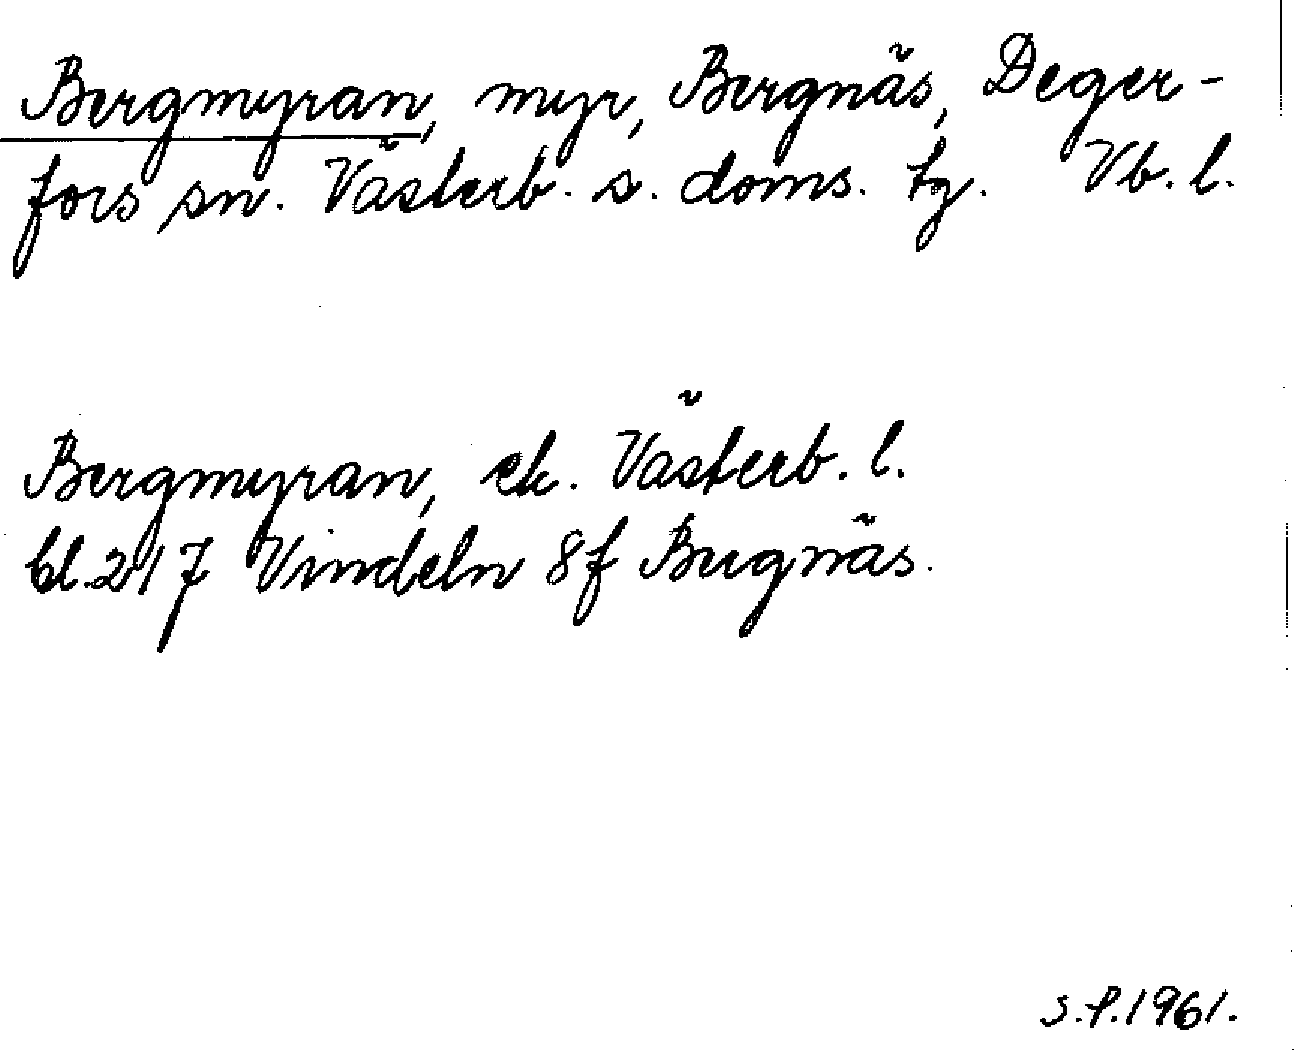 Bergmyran, myr, Bergnäs, Deger-
fors sn. Västerb. s. doms. tg. Vb. l.
Bergmyran, ek. Västerb. l.
bl. 217 Vindeln 8f Bergnäs.
S.P. 1961.